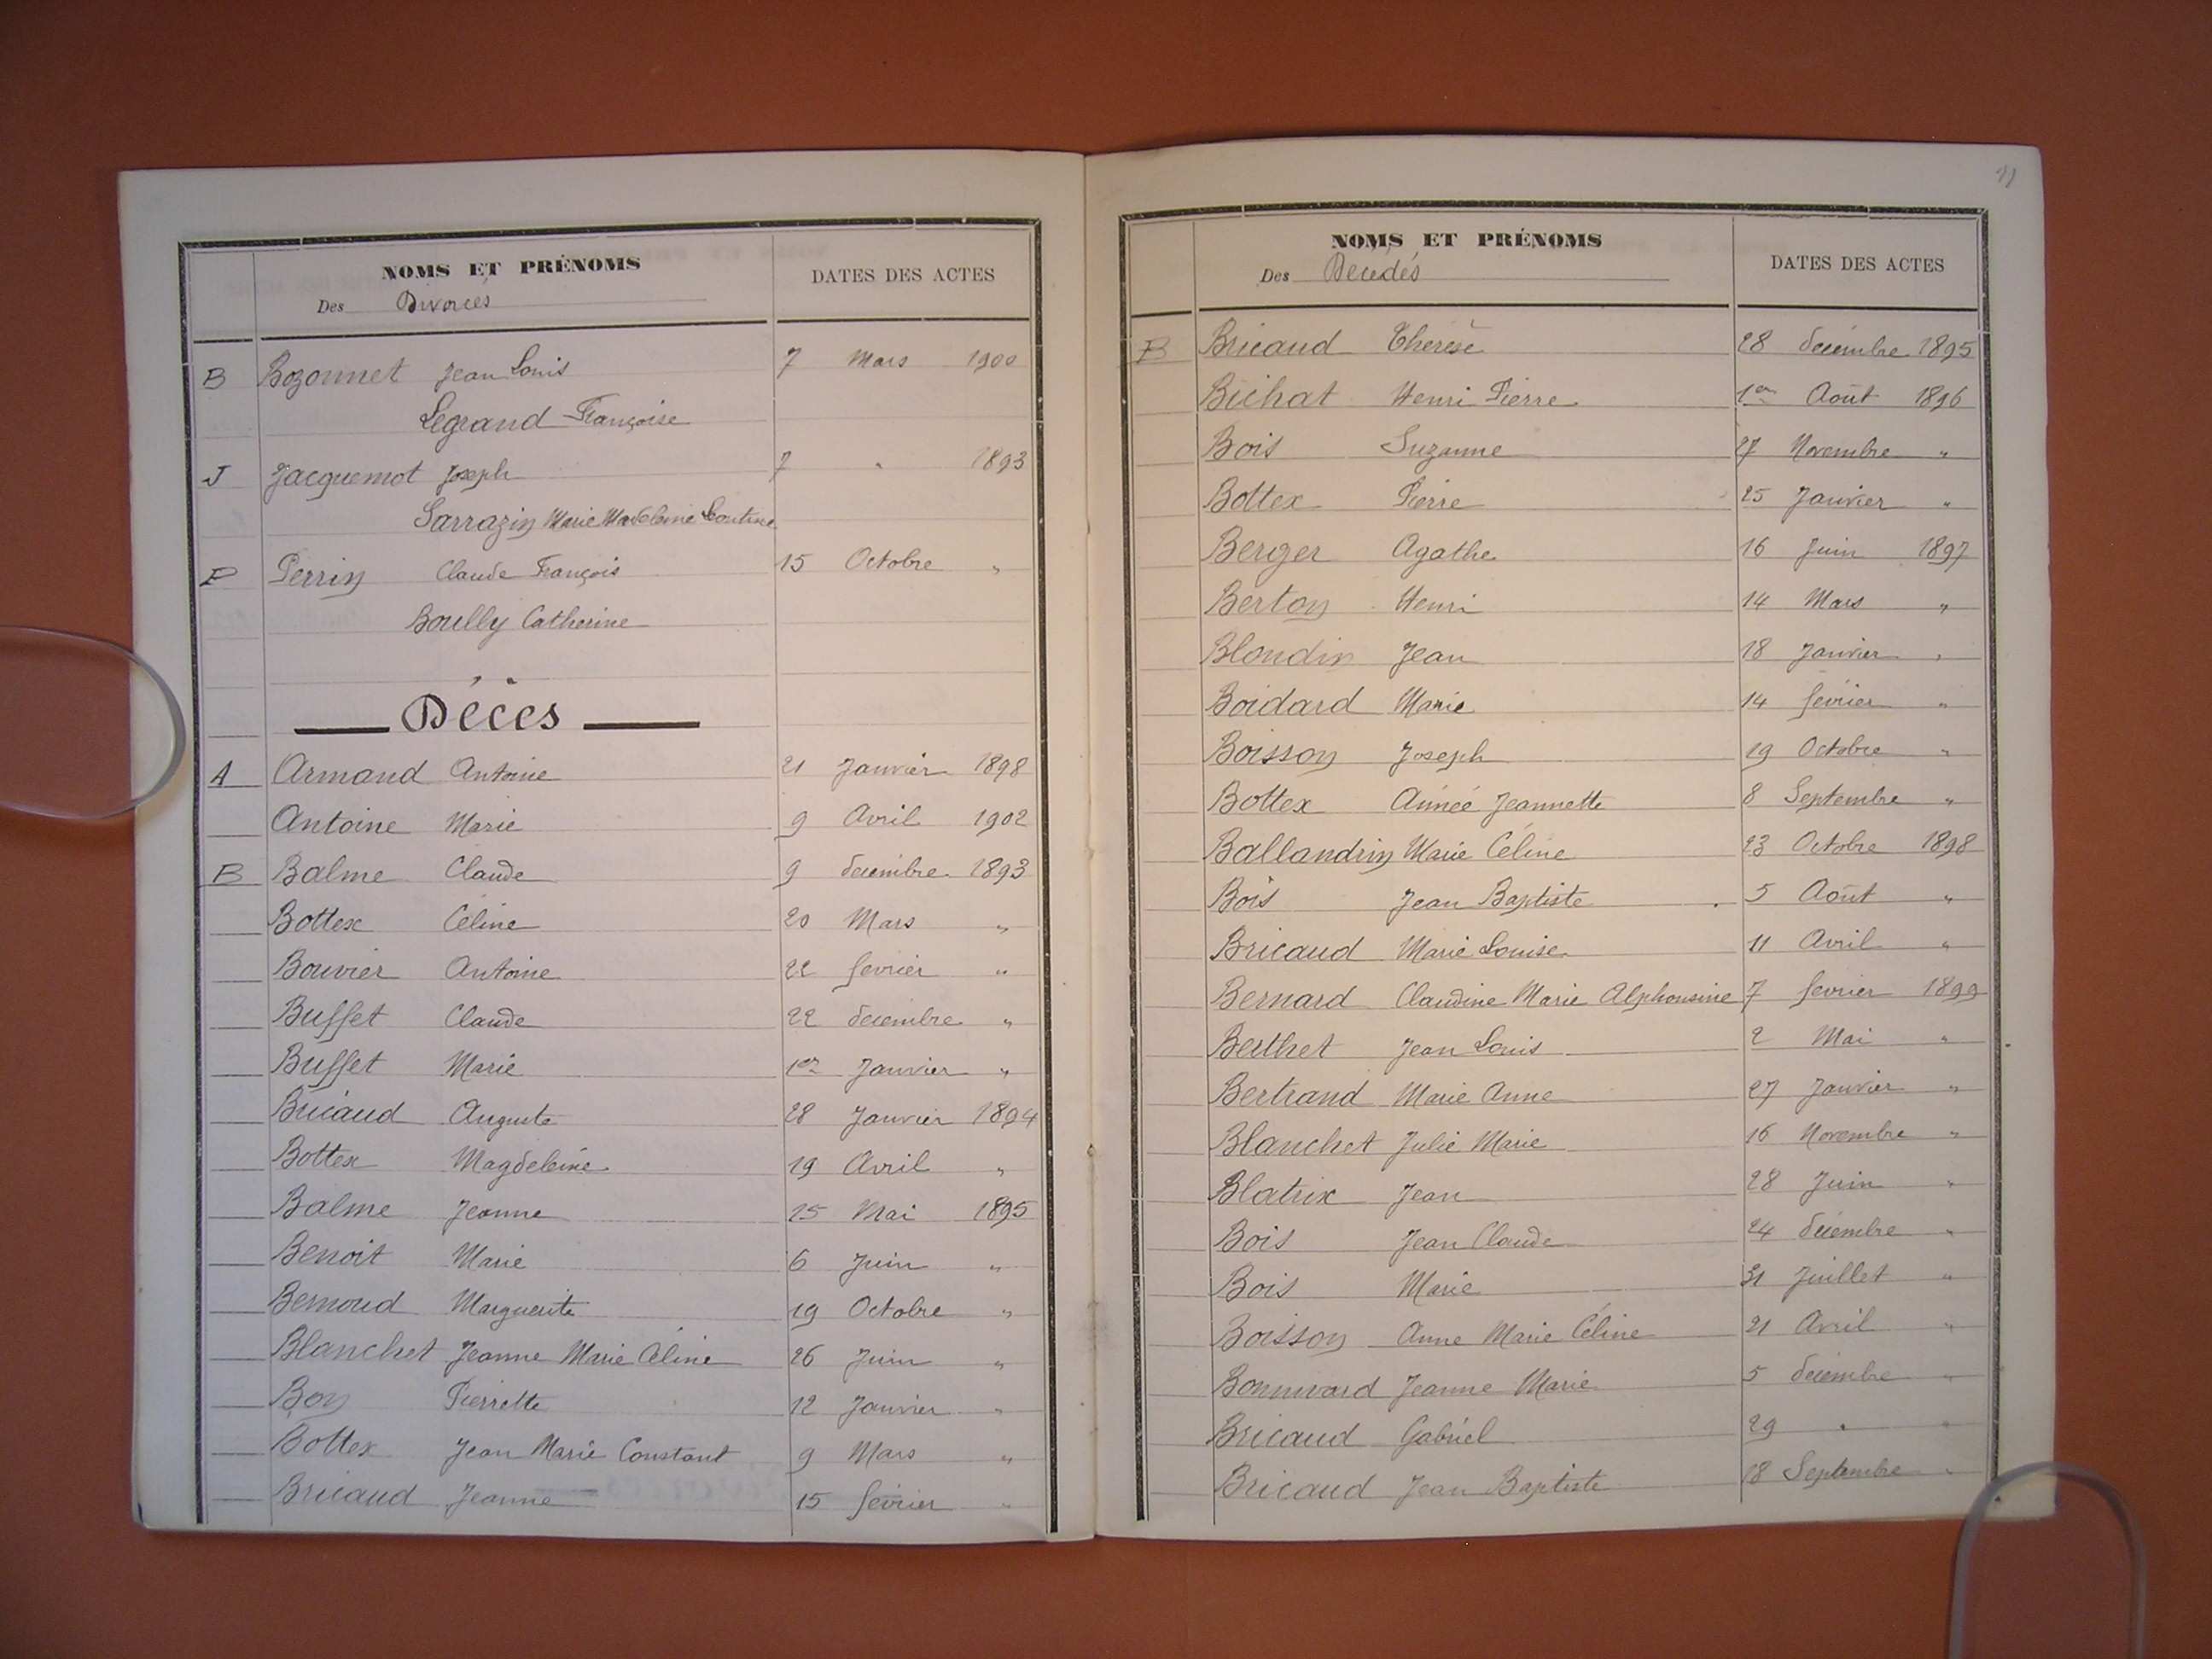 NOMS ET PRÉNOMS
Des Divorcés
DATES DES ACTES
B Bozonnet Jean Louis 7 Mars 1900
Legrand Françoise
J Jacquemot Joseph 7 " 1893
Sarrazin Marie Madeleine
P Perrin Claude François 15 Octobre "
Boully Catherine
Décès
A Armand Antoine 21 Janvier 1898
Antoine Marie 9 Avril 1902
B Balme Claude 9 décembre 1893
Bottex Céline 20 Mars "
Bouvier Antoine 22 février "
Buffet Claude 22 décembre "
Buffet Marie 1er Janvier "
Bricaud Auguste 28 Janvier 1894
Bottex Magdeleine 19 Avril "
Balme Jeanne 15 Mai 1895
Benoit Marie 6 Juin "
Bernoud Marguerite 19 Octobre "
Blanchet Jeanne Marie Céline 26 Juin "
Bon Pierrette 12 Janvier "
Bottex Jean Marie Constant 9 Mars "
Bricaud Jeanne 15 février "
11
NOMS ET PRÉNOMS
Des Décédés
DATES DES ACTES
B Bricaud Thérèse 28 décembre 1895
Bichat Henri Pierre 1er Août 1896
Bois Suzanne 27 Novembre "
Bottex Pierre 25 Janvier "
Berger Agathe 16 Juin 1897
Berton Henri 14 Mars "
Blondin Jean 18 Janvier "
Boidard Marie 14 février "
Boisson Joseph 19 Octobre "
Bottex Aimée Jeannette 8 Septembre "
Ballandrin Marie Céline 23 Octobre 1898
Bois Jean Baptiste 5 Août "
Bricaud Marie Louise 11 Avril "
Bernard Claudine Marie Alphonsine 7 février 1899
Berthet Jean Louis 2 Mai "
Bertrand Marie Anne 27 Janvier "
Blanchet Julie Marie 16 Novembre "
Blatrix Jean 28 Juin "
Bois Jean Claude 24 décembre "
Bois Marie 31 Juillet "
Boisson Anne Marie Céline 21 Avril "
Bonnvard Jeanne Marie 5 décembre "
Bricaud Gabriel 29 " "
Bricaud Jean Baptiste 18 Septembre "